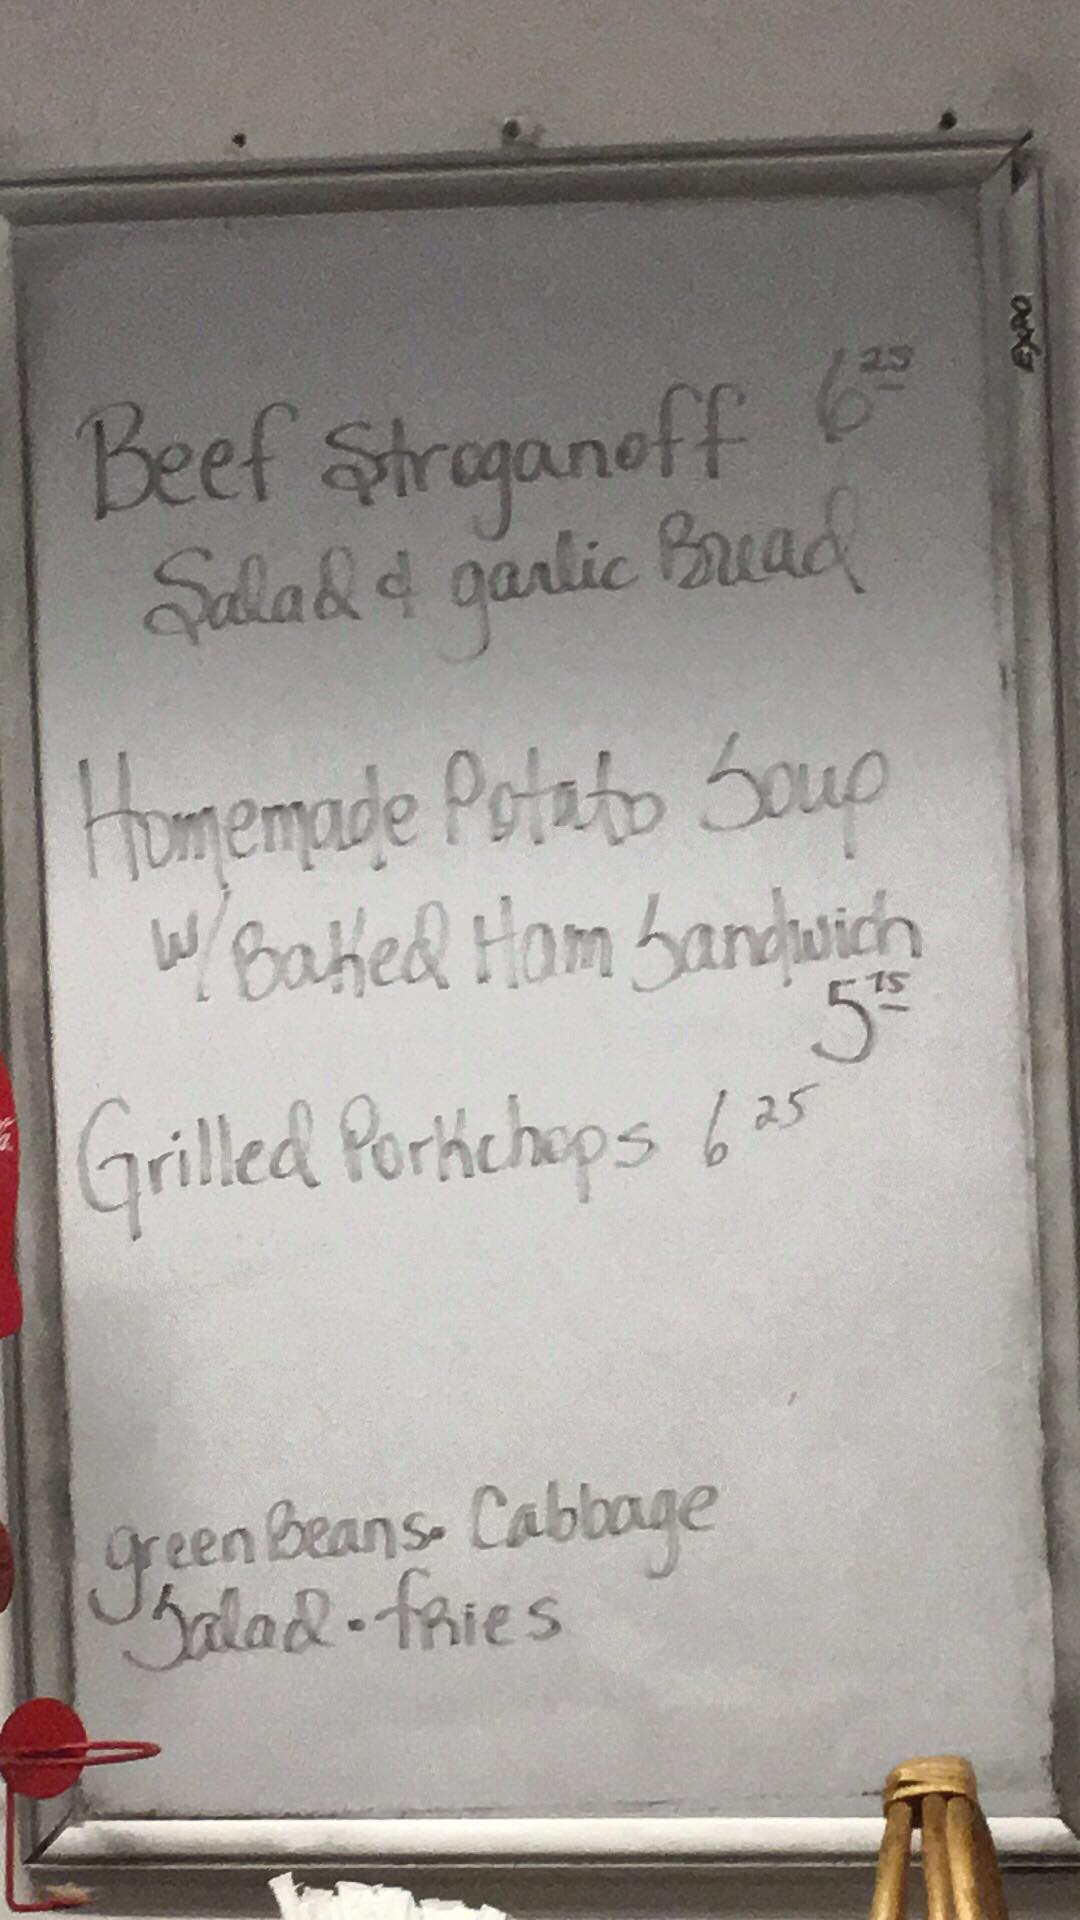 EXPO
Beef Stroganoff 6 25
Salad & garlic Bread
Homemade Potato Soup
w/ Baked Ham Sandwich
5 75
Grilled Porkchops 6 25
green Beans • Cabbage
Salad • fries